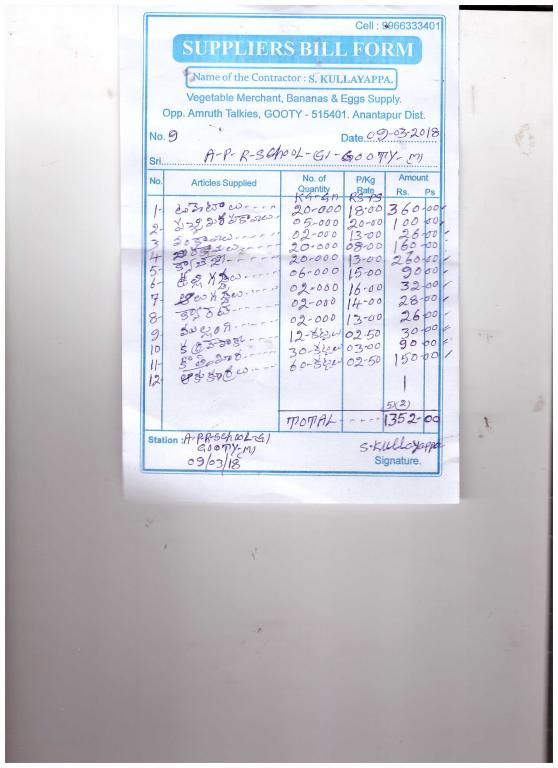 Cell : 9966333401
SUPPLIERS BILL FORM
Name of the Contractor : S. KULLAYAPPA.
Vegetable Merchant, Bananas & Eggs Supply.
Opp. Amruth Talkies, GOOTY - 515401. Anantapur Dist.
No. 9 Date 09-03-2018
Sri. A-P-R-SCHOOL-G1-GOOTY-(M)
No. Articles Supplied No. of Quantity P/Kg Rate Amount Rs. Ps
KG-GM RS-PS
1- టమోటాలు 20-000 18-00 360-00
2- పచ్చిమిరపకాయలు 05-000 20-00 100-00
3- వంకాయలు 02-000 13-00 26-00
4- 20-000 08-00 160-00
5- క్యాబేజి 20-000 13-00 260-00
6- ఉల్లిగడ్డ 06-000 15-00 90-00
7- ఆలుగడ్డలు 02-000 16-00 32-00
8- క్యారెట్ 02-000 14-00 28-00
9- ముల్లంగి 02-000 13-00 26-00
10 కరివేపాకు 12-కట్టలు 02-50 30-00
11- కొత్తిమీర 30-కట్టలు 03-00 90-00
12- ఆకుకూరలు 60-కట్టలు 02-50 150-00
TOTAL 1352-00
Station : A-P-R-SCHOOL-G1
GOOTY-(M)
09/03/18
S. Kullayappa
Signature.